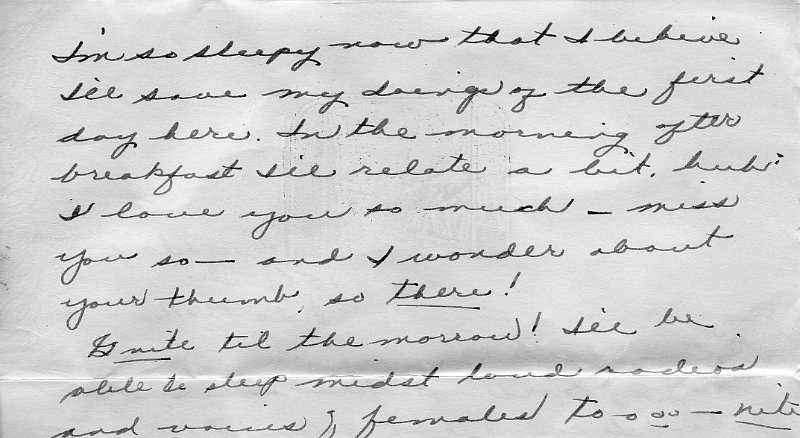 I'm so sleepy now that I believe
I'll save my doings of the first
day here. In the morning after
breakfast I'll relate a bit, huh?
I love you so much – miss
you so – and I wonder about
your thumb, so there!
G'nite til the morrow! I'll be
able to sleep midst loud radios
and voices of females too oo – nite